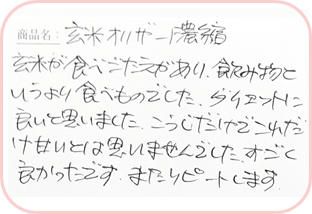 商品名：玄米オリザーノ濃縮
玄米が食べごたえがあり、飲み物と
いうより食べものでした。ダイエットに
良いと思いました。こうじだけでこれだ
け甘いとは思いませんでした。すごく
良かったです。またリピートします。